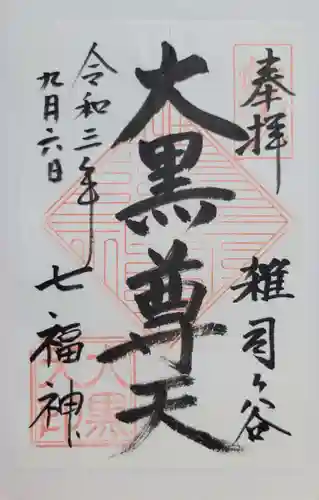 奉拝
雑司ヶ谷
大黒尊天
令和二年
九月六日
七福神
大黒